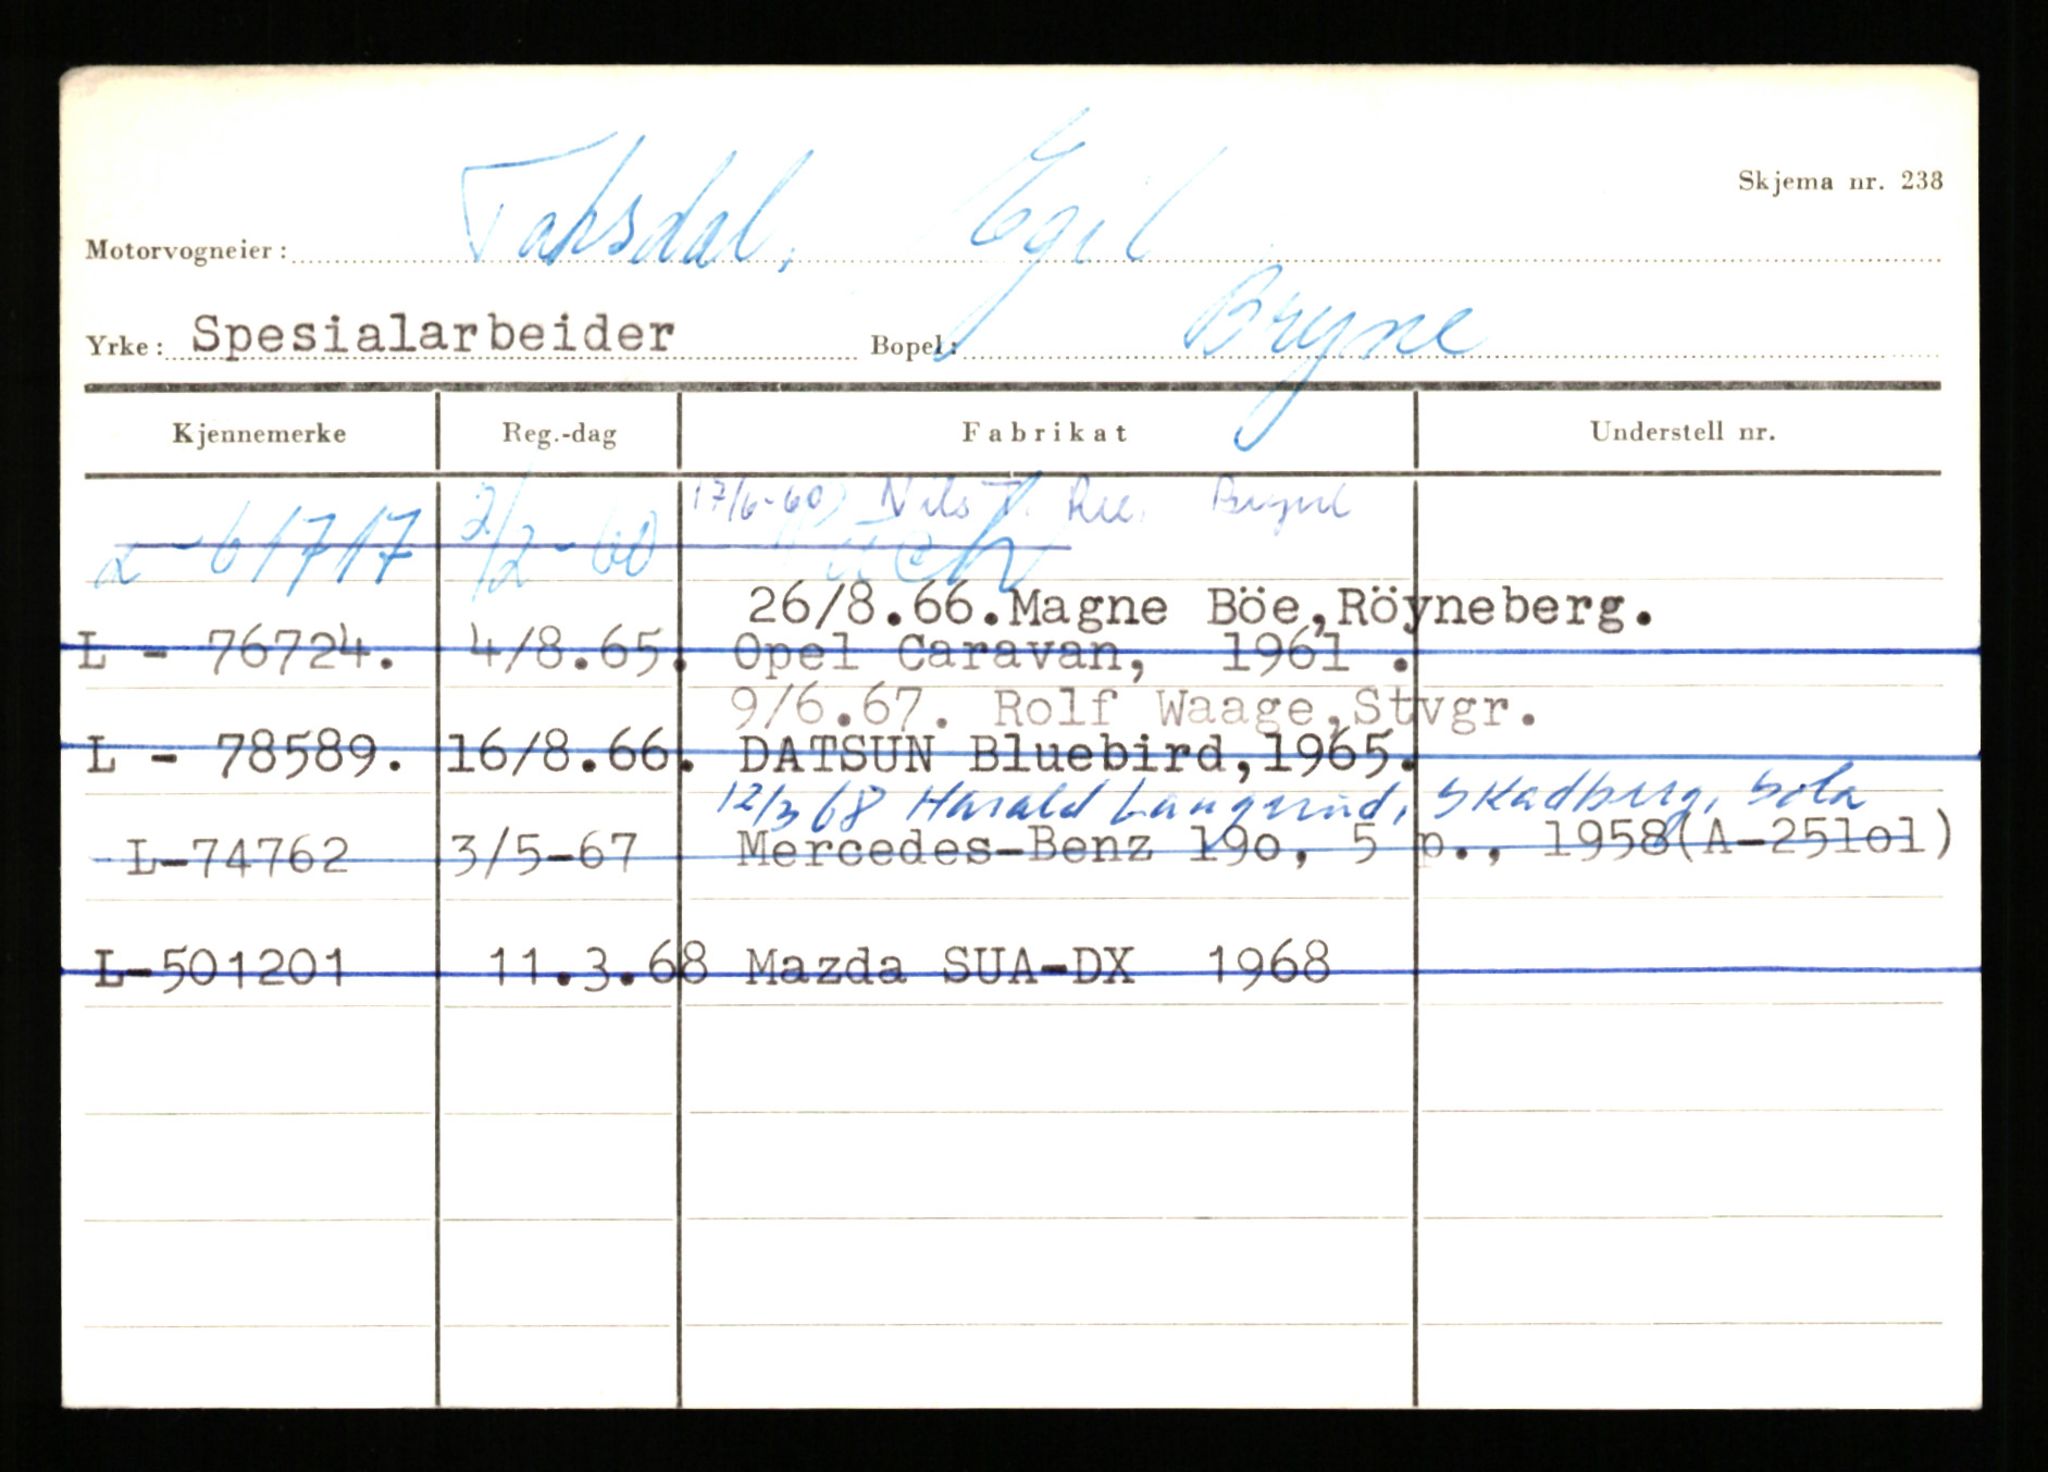 Skjema nr. 238
Motorvogneier: Taksdal, Egil
Yrke: Spesialarbeider Bopel: Bryne
Kjennemerke Reg.-dag Fabrikat Understell nr.
17/6-60 Nils T. Ree, Bryne
L-61717 2/2-60 Puch
26/8.66.Magne Böe,Röyneberg.
L - 76724. 4/8.65. Opel Caravan, 1961 .
9/6.67. Rolf Waage,Stvgr.
L - 78589. 16/8.66. DATSUN Bluebird,1965.
12/3 68 Harald Skadberg, Sola
L-74762 3/5-67 Mercedes-Benz 190, 5 p., 1958(A-25lol)
L-501201 11.3.68 Mazda SUA-DX 1968